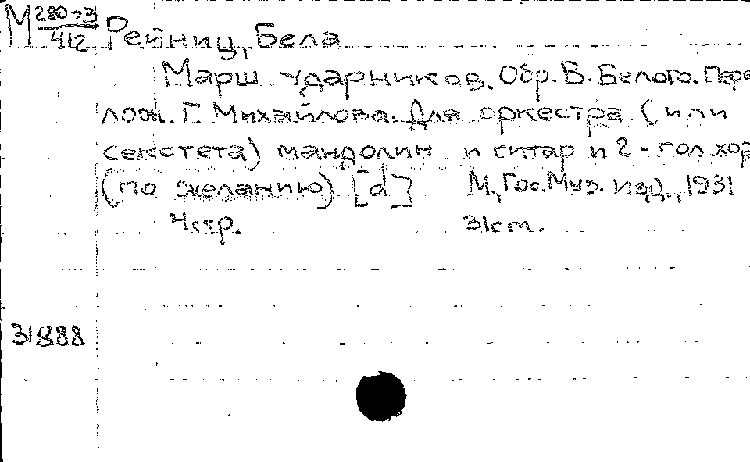 М 280-31/412 Рейниц, Бела
Марш ударников. Обр. В. Белого. Пере
лож. Г. Михайлова. Для оркестра (или
секстета) мандолин и гитар и 2-гол. хор
(по желанию) [d] М., Гос. Муз. изд., 1931
4 стр. 31 cm.
31888